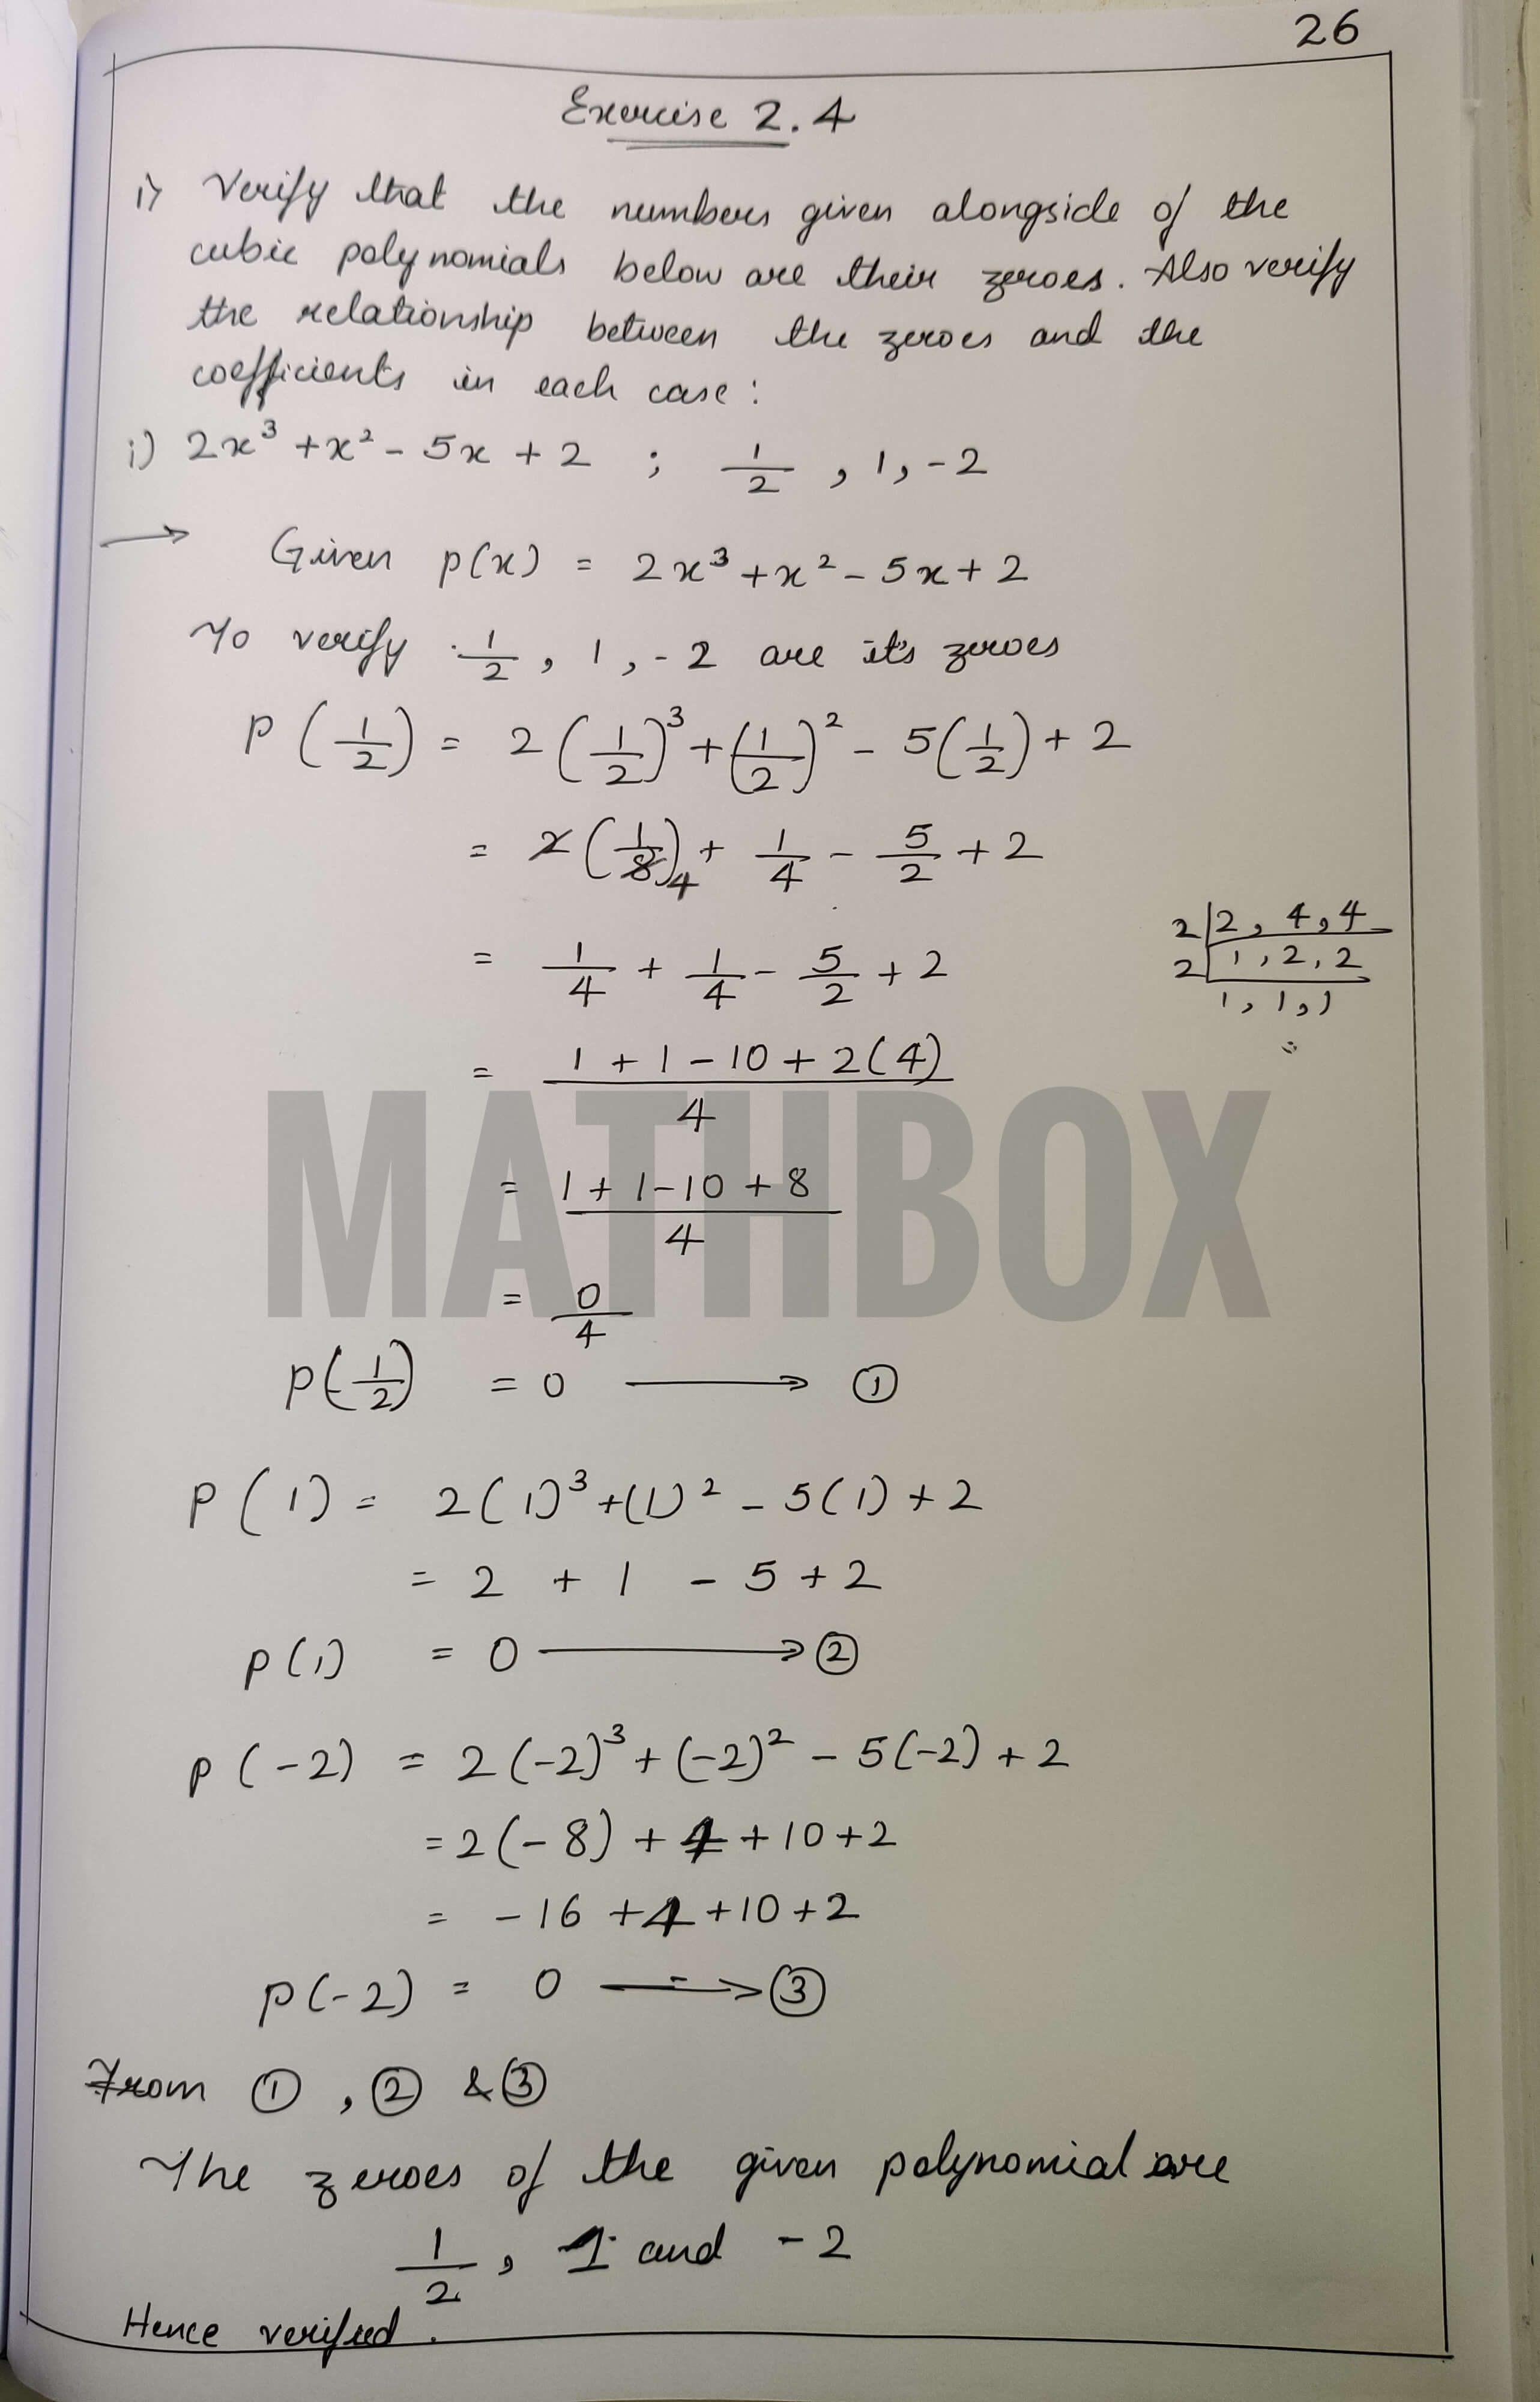 26
Exercise 2.4
1) Verify that the numbers given alongside of the
cubic polynomials below are their zeroes. Also verify
the relationship between the zeroes and the
coefficients in each case :
i) 2x³ + x² - 5x + 2 ; 1/2 , 1, -2
→ Given p(x) = 2x³ + x² - 5x + 2
To verify 1/2 , 1 , -2 are it's zeroes
P (1/2) = 2 (1/2)³ + (1/2)² - 5(1/2) + 2
= 2 (1/8)4 + 1/4 - 5/2 + 2
2 | 2, 4, 4
= 1/4 + 1/4 - 5/2 + 2
2 | 1, 2, 2
1, 1, 1
= 1 + 1 - 10 + 2(4) / 4
MATHBOX
= 1 + 1 - 10 + 8 / 4
= 0/4
P(1/2) = 0 → ①
P (1) = 2(1)³ + (1)² - 5(1) + 2
= 2 + 1 - 5 + 2
P(1) = 0 → ②
P (-2) = 2(-2)³ + (-2)² - 5(-2) + 2
= 2(-8) + 4 + 10 + 2
= -16 + 4 + 10 + 2
P(-2) = 0 → ③
From ① , ② & ③
The zeroes of the given polynomial are
1/2 , 1 and -2
Hence verified .